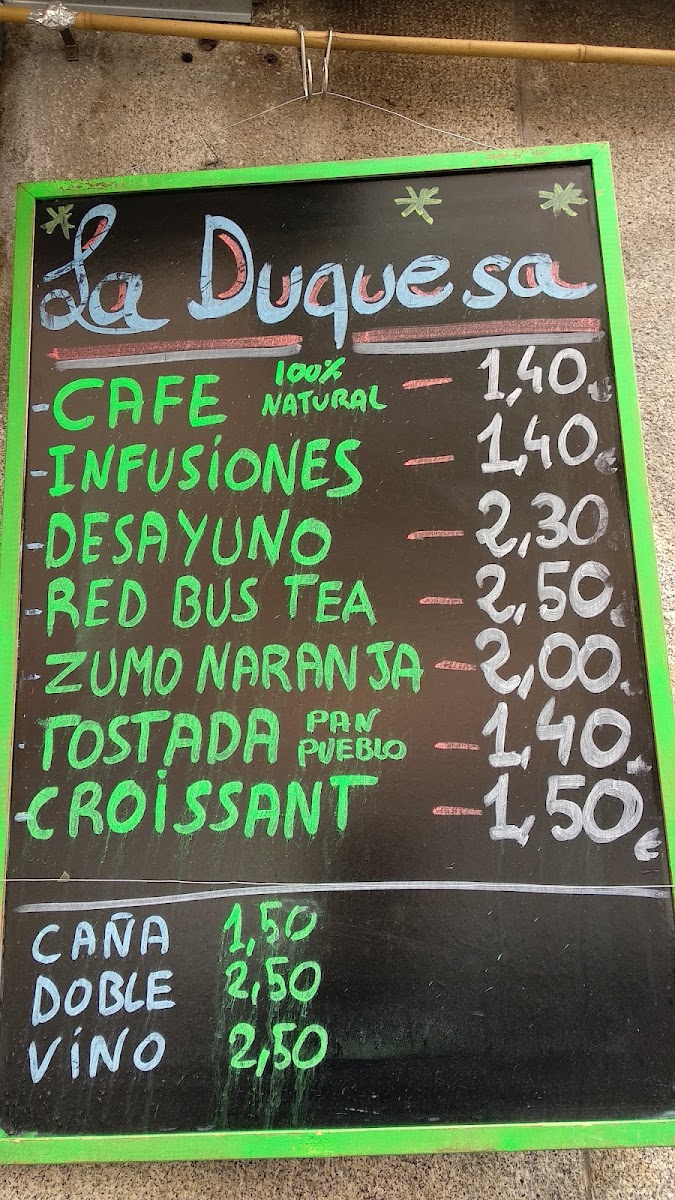 La Duquesa
- CAFE 100% NATURAL - 1,40 €
- INFUSIONES - 1,40 €
- DESAYUNO - 2,30
- RED BUS TEA - 2,50
- ZUMO NARANJA - 2,00
- TOSTADA PAN PUEBLO - 1,40
- CROISSANT - 1,50 €
CAÑA 1,50
DOBLE 2,50
VINO 2,50